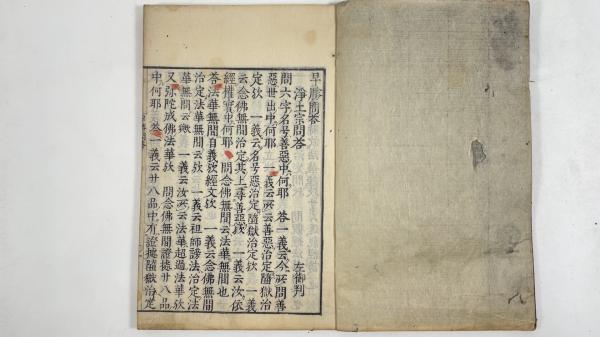 早勝問答
淨土宗問答　左御判
問六字名号善惡中何耶　荅一義云今所問善
惡世出中何耶　一義云所云善惡治定墮獄治
定欤　一義云名号惡治定墮獄治定欤　一義
云念佛無間治定其上尋善惡欤　一義云汝依
經權實中何耶　問念佛無間云法華無間也
荅法華無間自義欤經文欤　一義云念佛無間
治定法華無間云欤　一義云祖師謗法治定法
華無間云欤　一義云汝所云法華超過法華欤
又弥陀成佛法華欤　問念佛無間證據廿八品
中何耶　荅一義云廿八品中有證據墮獄治定